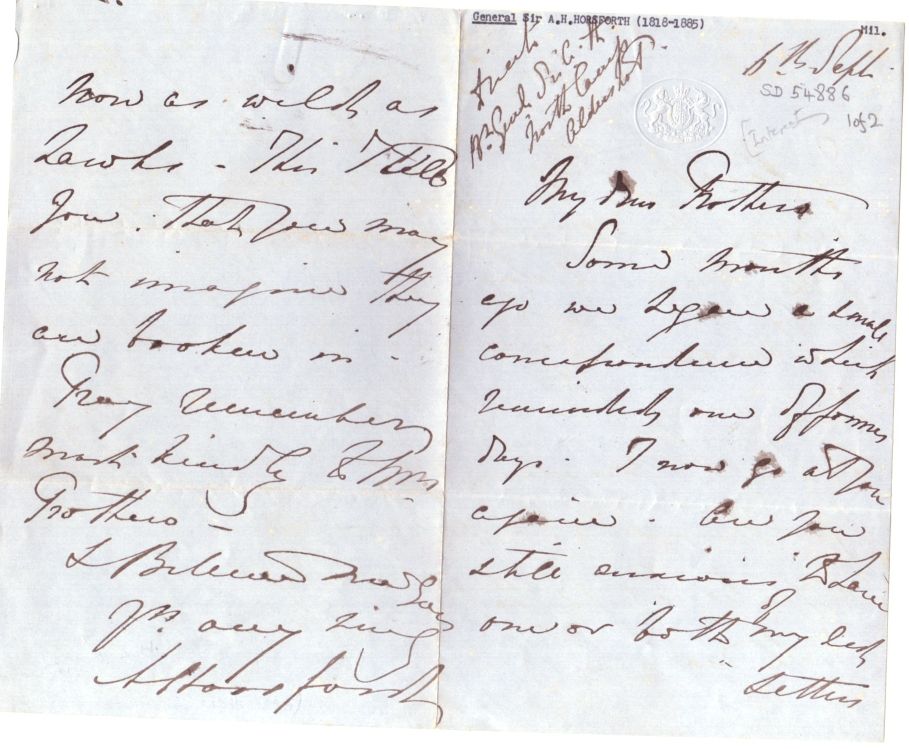 General Sir A.H.HORSFORTH (1818-1885)
Mil.
6th Sept.
SD 54886
1 of 2
North Camp
Aldershot
My dear Prothero
Some months
ago we began a small
correspondence which
reminded one of former
days. I now go at you
again. Are you
still anxious to have
one or both of my red
setters
now as wild as
Hawks - This I tell
you. That you may
not imagine they
are broken in -
Pray remember
most kindly to Mrs
Prothero -
& Believe me
Yrs very
AHorsford